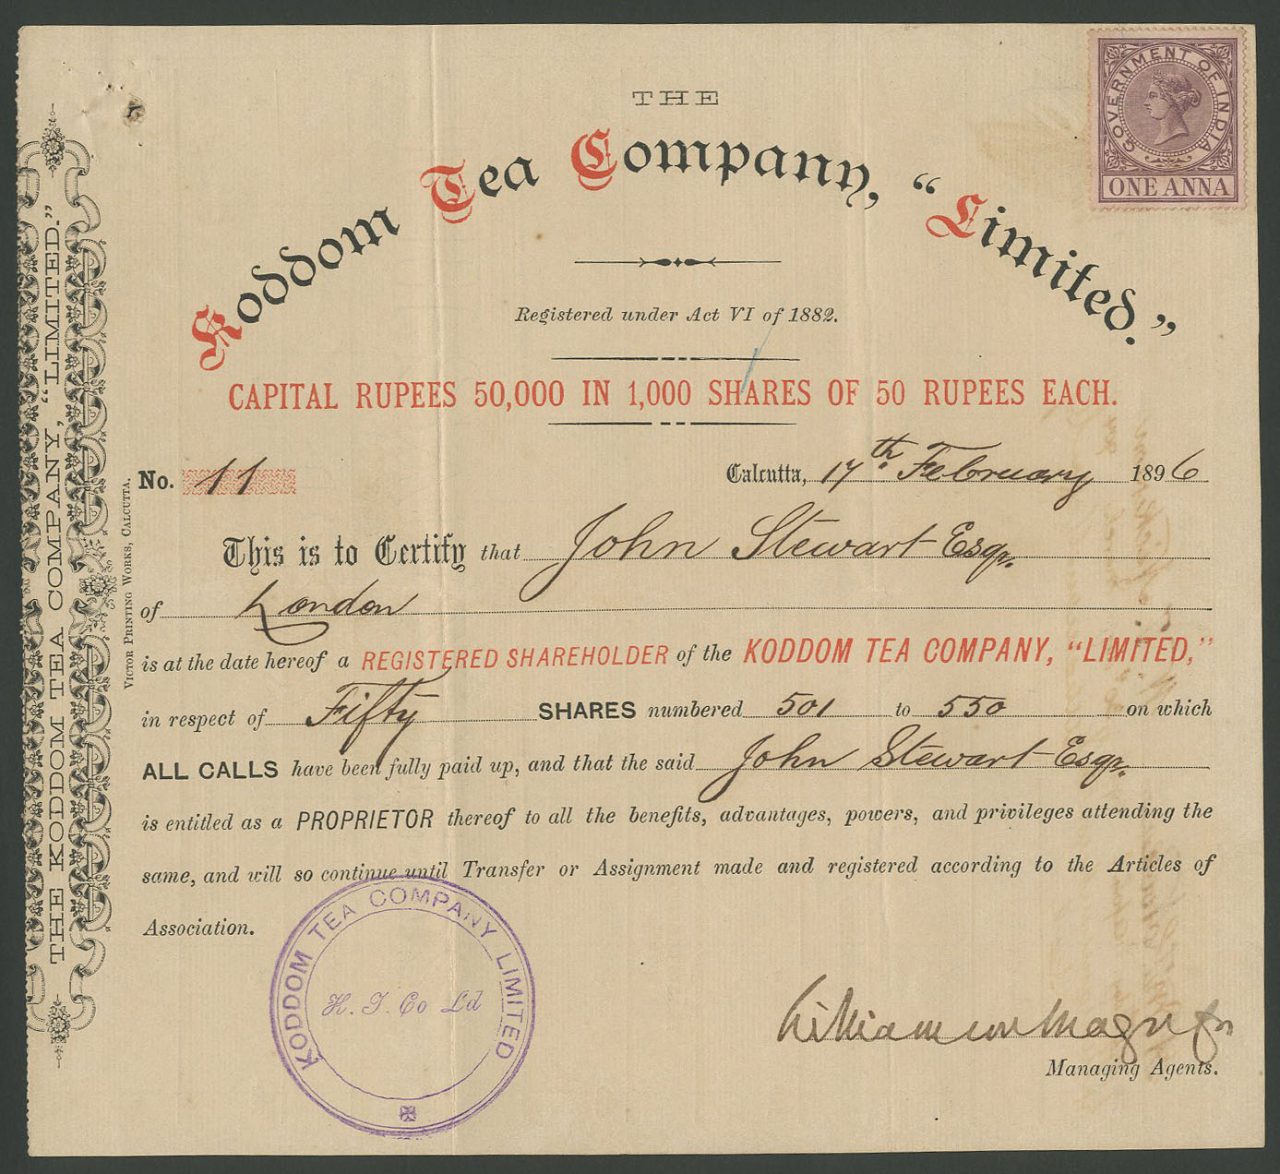 GOVERNMENT OF INDIA
ONE ANNA
THE
Koddom Tea Company, “Limited.”
Registered under Act VI of 1882.
CAPITAL RUPEES 50,000 IN 1,000 SHARES OF 50 RUPEES EACH.
No. 11 Calcutta, 17th February 1896
This is to Certify that John Stewart Esqr.
of London
is at the date hereof a REGISTERED SHAREHOLDER of the KODDOM TEA COMPANY, “LIMITED,”
in respect of Fifty SHARES numbered 501 to 550 on which
ALL CALLS have been fully paid up, and that the said John Stewart Esqr.
is entitled as a PROPRIETOR thereof to all the benefits, advantages, powers, and privileges attending the
same, and will so continue until Transfer or Assignment made and registered according to the Articles of
Association.
KODDOM TEA COMPANY LIMITED
K. T. Co Ld
Managing Agents.
THE KODDOM TEA COMPANY, “LIMITED.”
VICTOR PRINTING WORKS, CALCUTTA.